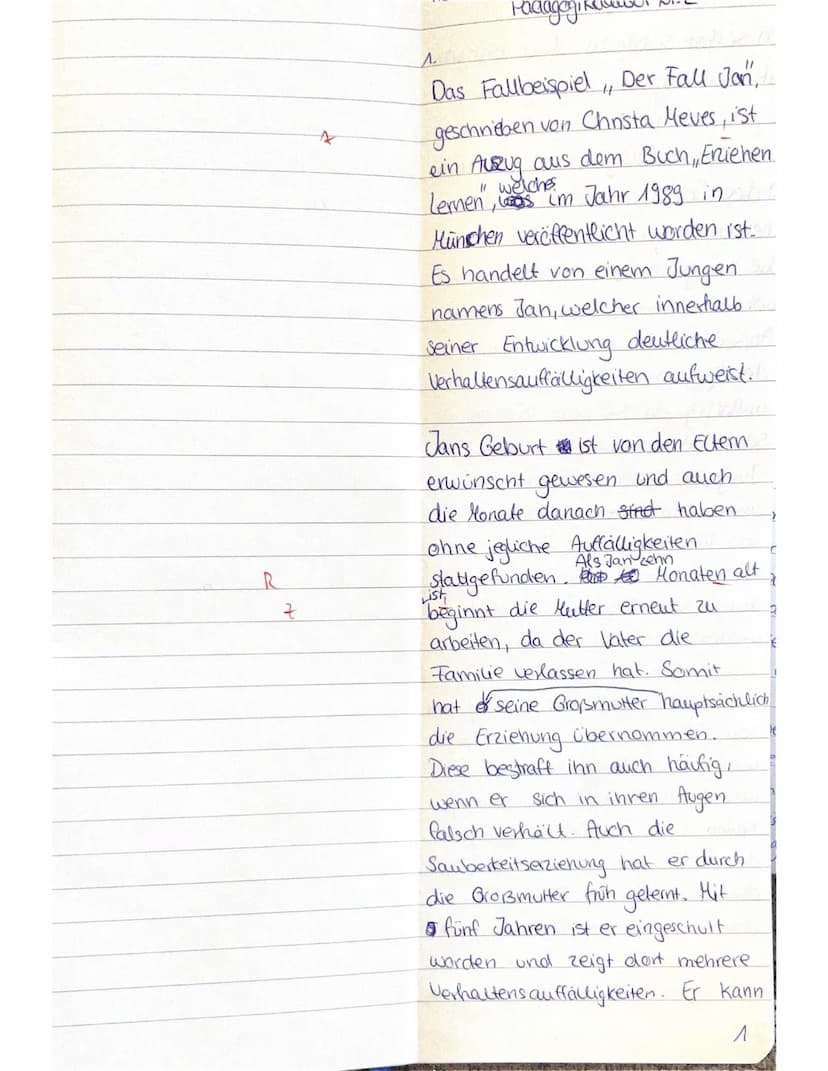 Pädagogikklausur Nr. 2
1.
Das Fallbeispiel „Der Fall Jan",
geschrieben von Christa Meves, ist
ein Auszug aus dem Buch „Erziehen
lernen", welches im Jahr 1989 in
München veröffentlicht worden ist.
Es handelt von einem Jungen
namens Jan, welcher innerhalb
seiner Entwicklung deutliche
Verhaltensauffälligkeiten aufweist.
Jans Geburt ist von den Eltern
erwünscht gewesen und auch
die Monate danach sind haben
ohne jegliche Auffälligkeiten
stattgefunden. Als Jan zehn Monaten alt
ist,
beginnt die Mutter erneut zu
arbeiten, da der Vater die
Familie verlassen hat. Somit
hat seine Großmutter hauptsächlich
die Erziehung übernommen.
Diese bestraft ihn auch häufig,
wenn er sich in ihren Augen
falsch verhält. Auch die
Sauberkeitserziehung hat er durch
die Großmutter früh gelernt. Mit
fünf Jahren ist er eingeschult
worden und zeigt dort mehrere
Verhaltensauffälligkeiten. Er kann
1
R
Z